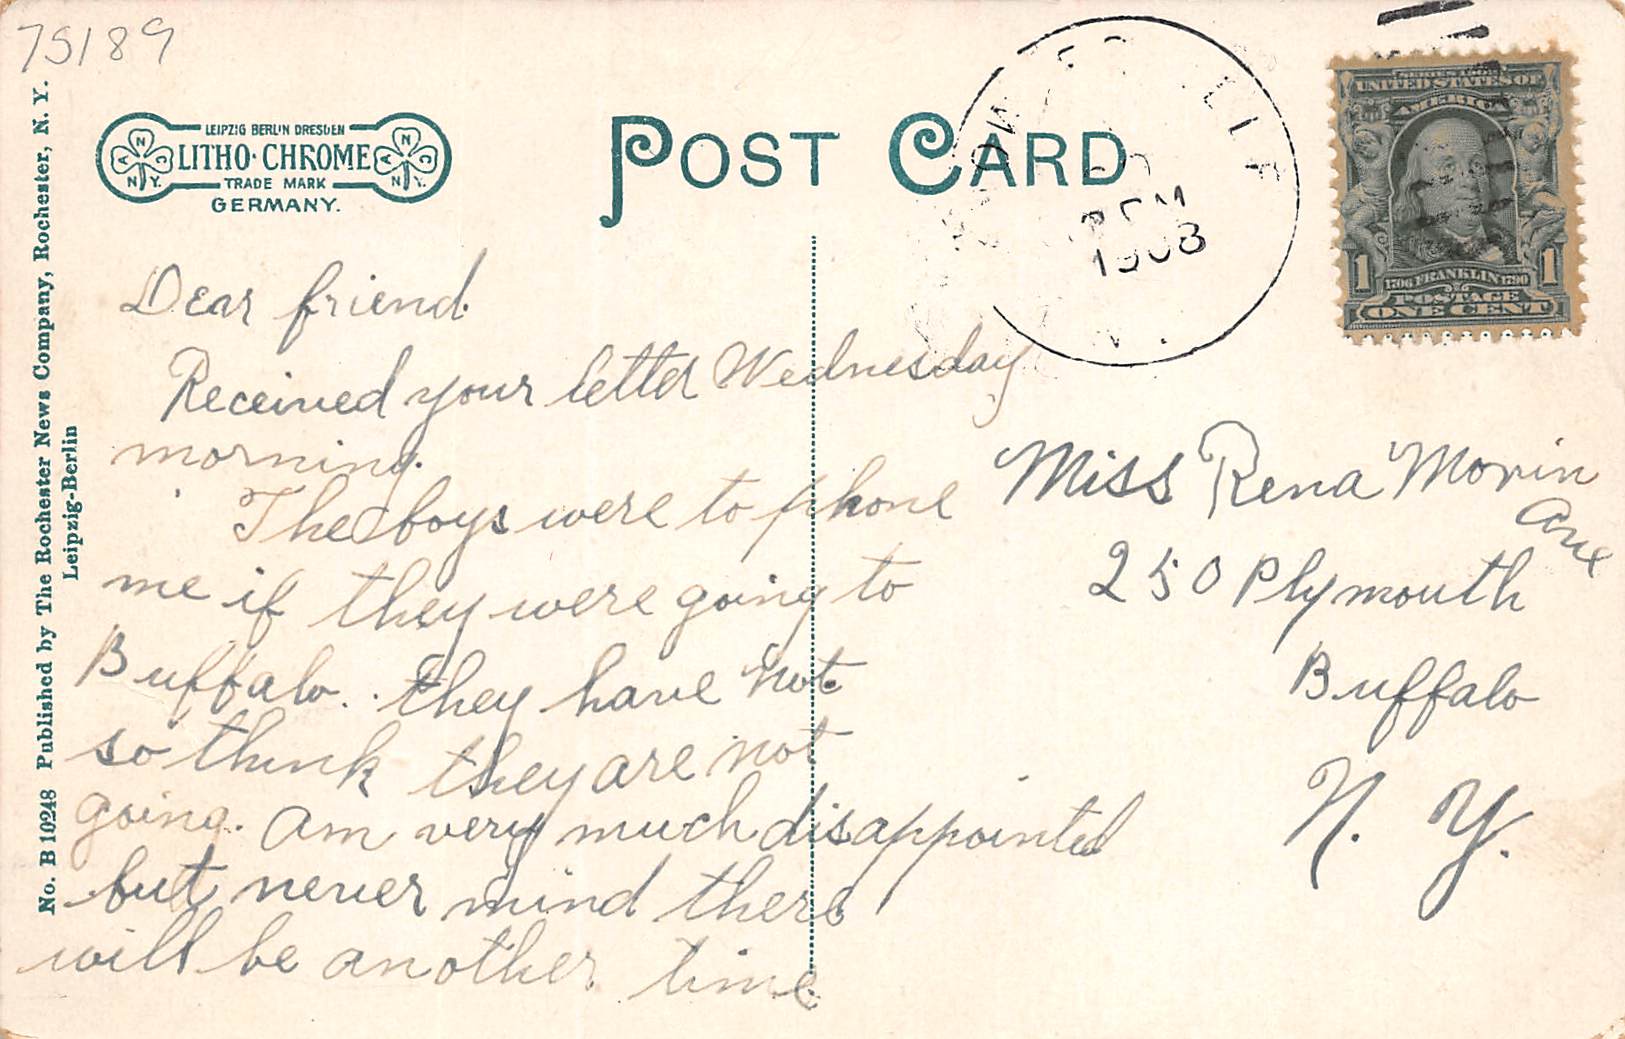 75189
LEIPZIG BERLIN DRESDEN
LITHO-CHROME
TRADE MARK
GERMANY.
A N C
N.Y.
A N C
N.Y.
POST CARD
1908
UNITED STATES OF
AMERICA
1 1
1706 FRANKLIN 1790
POSTAGE
ONE CENT
No. B 10248 Published by The Rochester News Company, Rochester, N. Y.
Leipzig-Berlin
Dear friend.
Received your letter Wednesday
morning.
The boys were to phone
me if they were going to
Buffalo. they have not
so think they are not
going. Am very much disappointed
but never mind there
will be another time.
Miss Rena Morin
250 Plymouth Ave
Buffalo
N. Y.